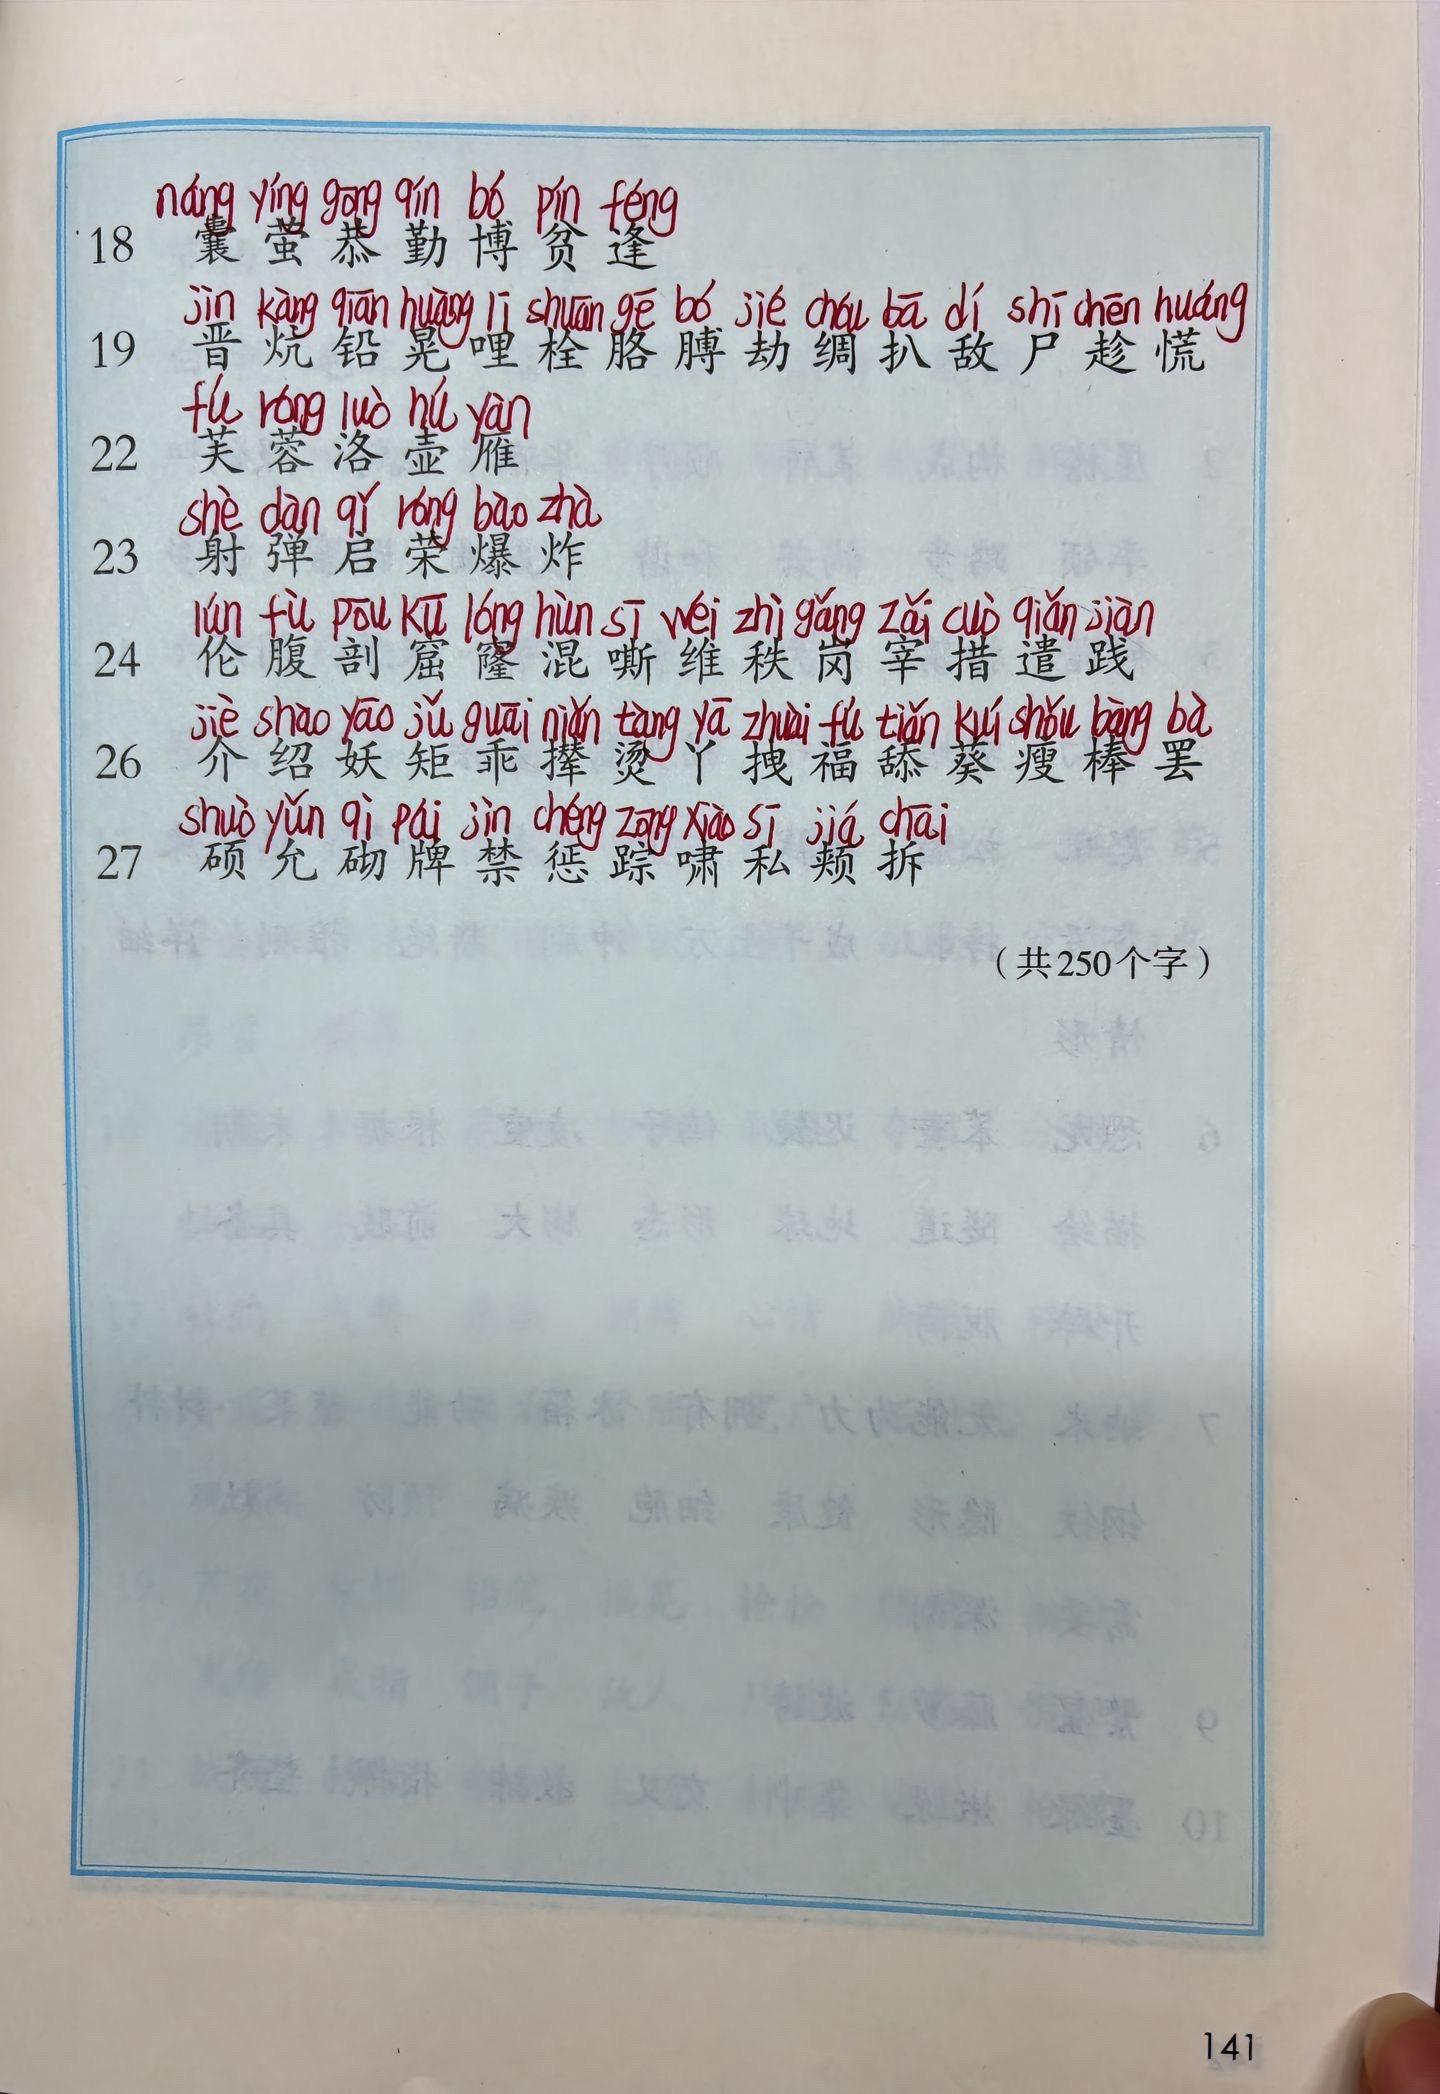 náng yíng gōng qín bó pín féng
18 囊 萤 恭 勤 博 贫 逢
jìn kàng qiān huàng lī shuān gē bó jié chóu bā dí shī chèn huáng
19 晋 炕 铅 晃 哩 栓 胳 膊 劫 绸 扒 敌 尸 趁 慌
fú róng luò hú yàn
22 芙 蓉 洛 壶 雁
shè dàn qǐ róng bào zhà
23 射 弹 启 荣 爆 炸
lún fù pōu kū lóng hùn sī wéi zhì gǎng zǎi cuò qiǎn jiàn
24 伦 腹 剖 窟 窿 混 嘶 维 秩 岗 宰 措 遣 践
jiè shào yāo jǔ guāi niǎn tàng yā zhuài fú tiǎn kuí shòu bàng bà
26 介 绍 妖 矩 乖 撵 烫 丫 拽 福 舔 葵 瘦 棒 罢
shuò yǔn qì pái jìn chéng zōng xiào sī jiá chāi
27 硕 允 砌 牌 禁 惩 踪 啸 私 颊 拆
（共250个字）
141